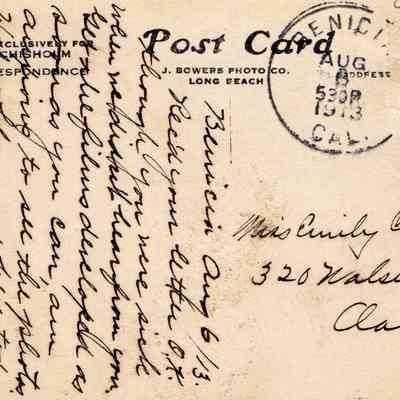 EXCLUSIVELY FOR
CHISHOLM
RESPONDENCE
Post Card
J. BOWERS PHOTO CO.
LONG BEACH
ADDRESS
BENICIA
AUG
6
530P
1913
CAL.
Benicia Aug 6/13.
Rec'd your letter O.K.
thought you were sick
when we didnt hear from you.
Get the films developed as
soon as you can am
anxious to see the photos
Miss Emily
320 Wals